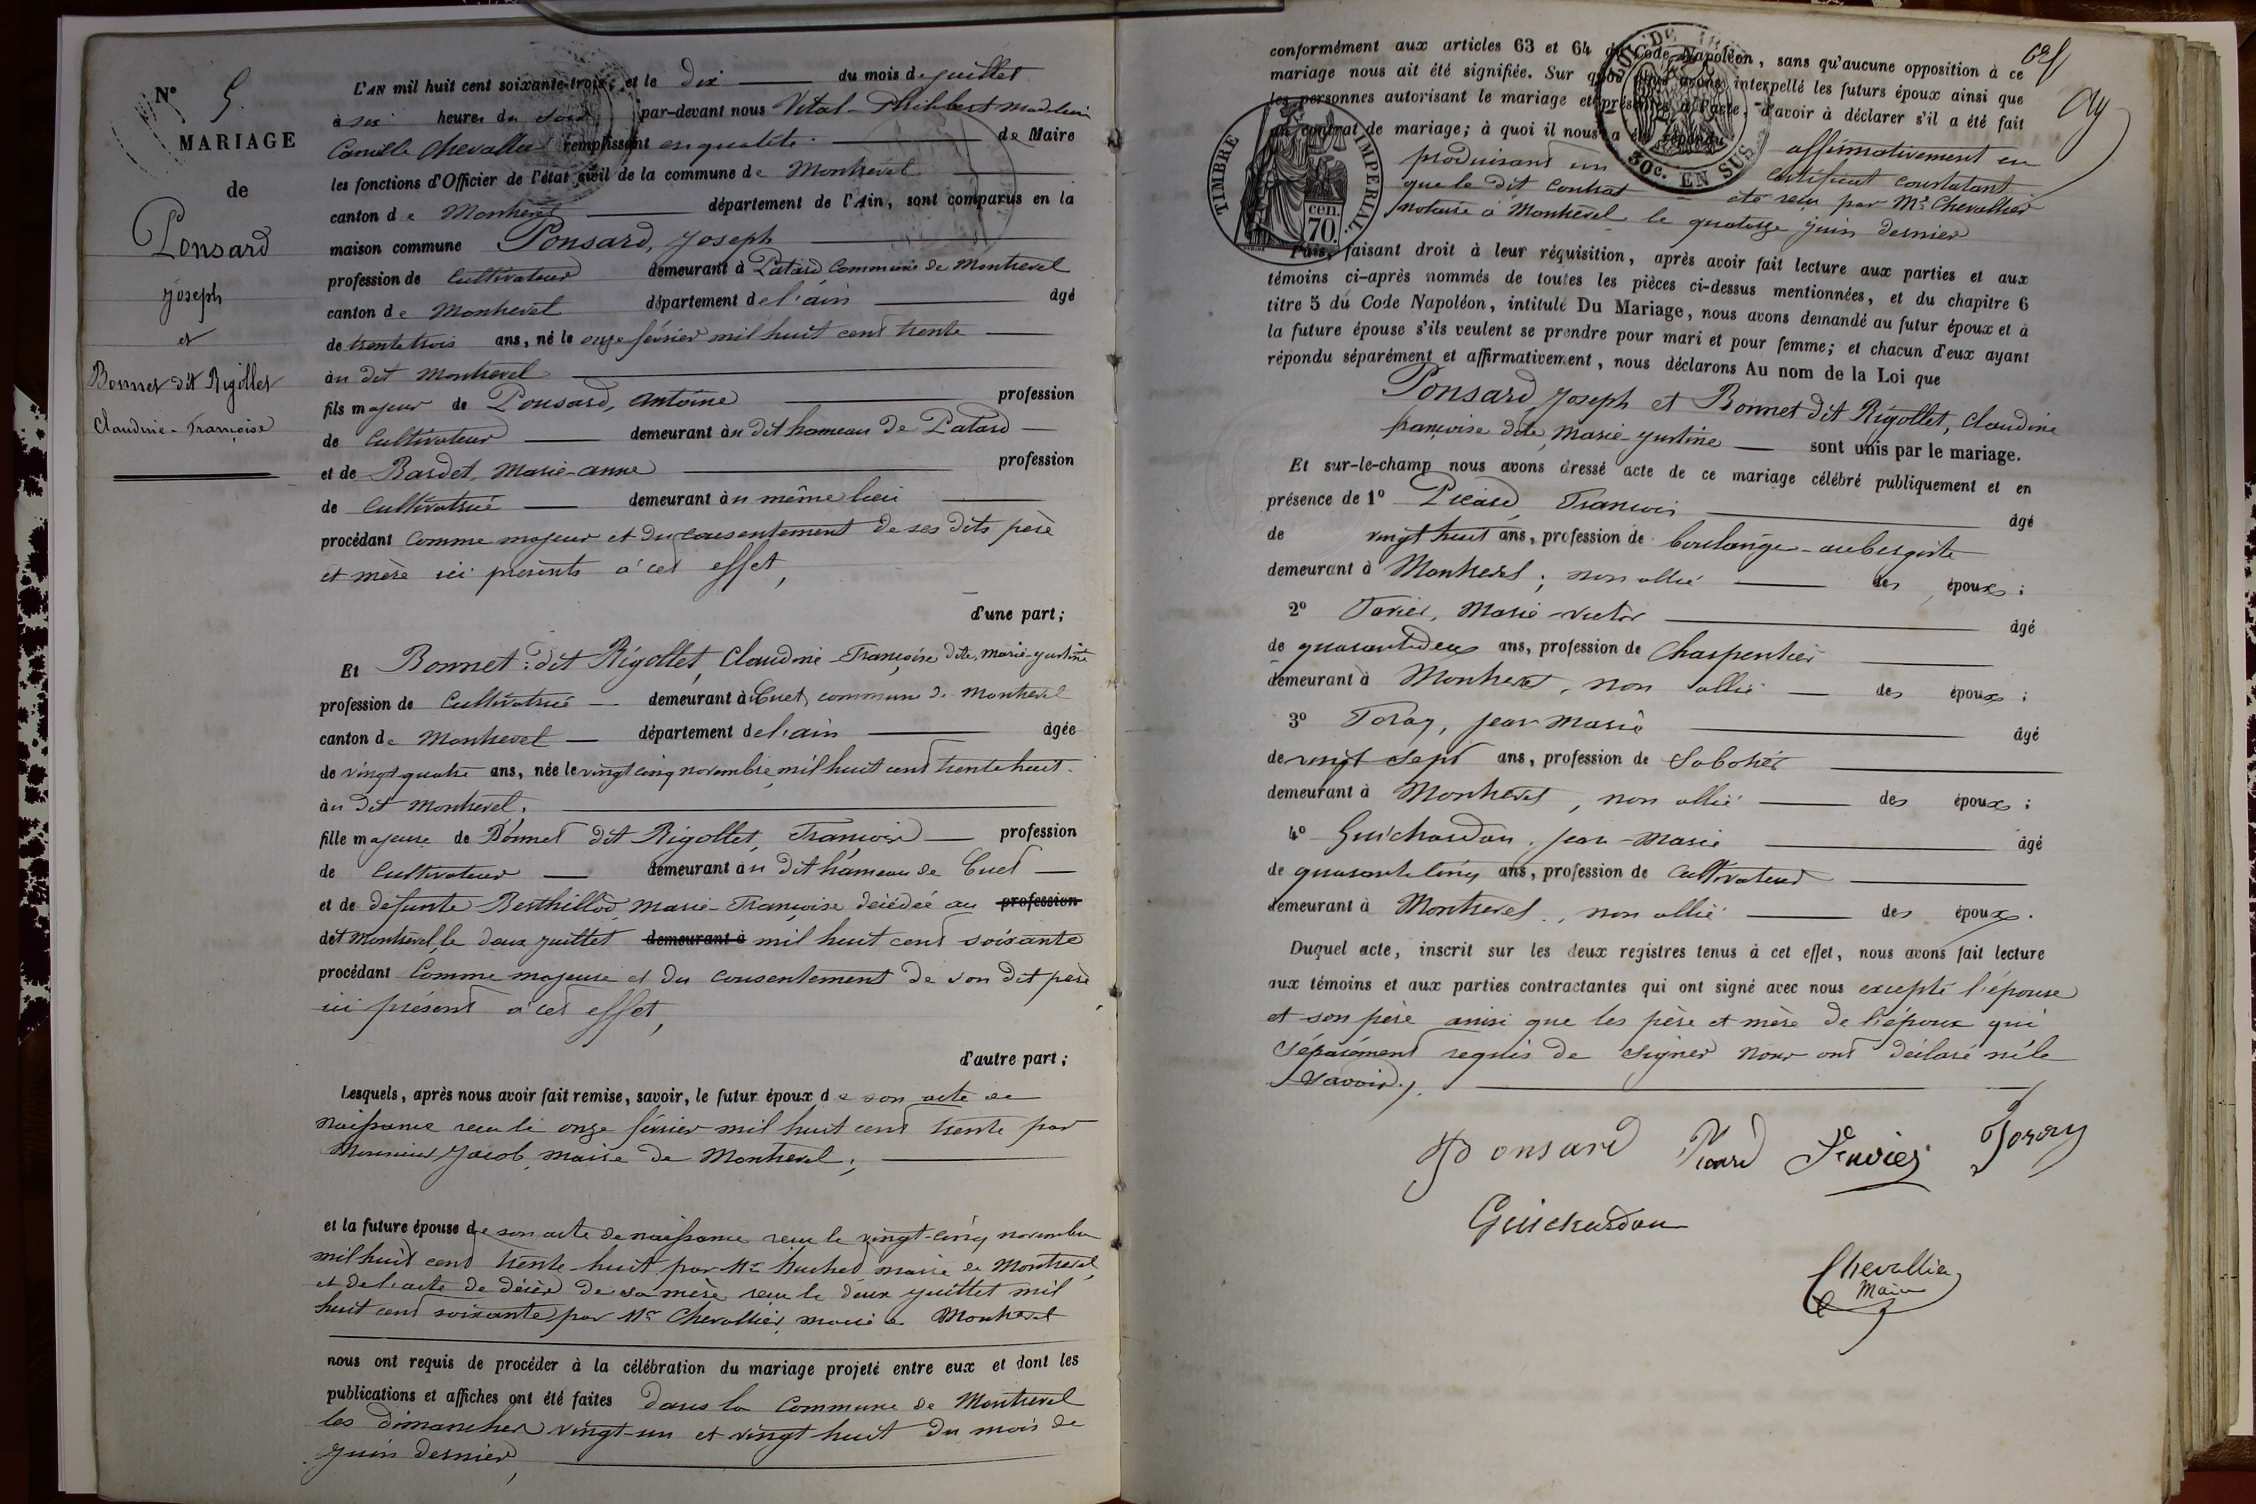 N° 5.
MARIAGE
de
Ponsard
Joseph
et
Bonnet dit Rigollet
Claudine-Françoise
L'AN mil huit cent soixante-trois, et le dix du mois de juillet
à six heures du soir par-devant nous Vital-Philibert Madelein
Camille Chevallier remplissant en qualité de Maire
les fonctions d'Officier de l'état civil de la commune de Montrevel
canton de Montrevel département de l'Ain, sont comparus en la
maison commune Ponsard, Joseph
profession de Cultivateur demeurant à Patard Commune de Montrevel
canton de Montrevel département de l'ain âgé
de trente trois ans, né le onze février mil huit cent trente
au dit Montrevel
fils majeur de Ponsard, antoine profession
de Cultivateur demeurant au dit hameau de Patard
et de Bardet, Marie-anne profession
de Cultivatrice demeurant au même lieu
procédant comme majeur et du consentement de ses dits père
et mère ici présents à cet effet,
d'une part ;
Et Bonnet dit Rigollet, Claudine-Françoise dite Marie-justine
profession de Cultivatrice demeurant à Cuet, commune de Montrevel
canton de Montrevel département de l'ain âgée
de vingt quatre ans, née le vingt cinq novembre mil huit cent trente huit
au dit Montrevel,
fille majeure de Bonnet dit Rigollet, François profession
de Cultivateur demeurant au dit hameau de Cuet
et de défunte Berthillod, Marie-Françoise décédée au profession
dit Montrevel, le deux juillet demeurant à mil huit cent soixante
procédant Comme majeure et du consentement de son dit père
ici présent à cet effet,
d'autre part ;
Lesquels, après nous avoir fait remise, savoir, le futur époux de son acte de
naissance reçu le onze février mil huit cent trente par
Monsieur Jacob, maire de Montrevel ;
et la future épouse de son acte de naissance reçu le vingt-cinq novembre
mil huit cent trente-huit par Mr maire de Montrevel,
et de l'acte de décès de sa mère reçu le deux juillet mil
huit cent soixante par Mr Chevallier, maire de Montrevel
nous ont requis de procéder à la célébration du mariage projeté entre eux et dont les
publications et affiches ont été faites dans la Commune de Montrevel
les dimanches vingt-un et vingt huit du mois de
juin dernier,
conformément aux articles 63 et 64 du Code Napoléon, sans qu'aucune opposition à ce
mariage nous ait été signifiée. Sur quoi nous avons interpellé les futurs époux ainsi que
les personnes autorisant le mariage et présentes à l'acte, d'avoir à déclarer s'il a été fait
un contrat de mariage ; à quoi il nous a été répondu affirmativement en
produisant un certificat constatant
que le dit contrat a été reçu par Me Chevallier
notaire à Montrevel le quatorze juin dernier
TIMBRE IMPERIAL
cen. 70.
30c. EN SUS
Puis, faisant droit à leur réquisition, après avoir fait lecture aux parties et aux
témoins ci-après nommés de toutes les pièces ci-dessus mentionnées, et du chapitre 6
titre 5 du Code Napoléon, intitulé Du Mariage, nous avons demandé au futur époux et à
la future épouse s'ils veulent se prendre pour mari et pour femme ; et chacun d'eux ayant
répondu séparément et affirmativement, nous déclarons Au nom de la Loi que
Ponsard, Joseph et Bonnet dit Rigollet, Claudine
françoise dite Marie-justine sont unis par le mariage.
Et sur-le-champ nous avons dressé acte de ce mariage célébré publiquement et en
présence de 1° Picard François âgé
de vingt huit ans, profession de boulanger-aubergiste
demeurant à Montrevel ; non allié des époux ;
2° Marie-victor âgé
de quarante deux ans, profession de Charpentier
demeurant à Montrevel, non allié des époux ;
3° Foray, jean marie âgé
de vingt sept ans, profession de Sabotier
demeurant à Montrevel, non allié des époux ;
4° Guichardan, jean-Marie âgé
de quarante cinq ans, profession de Cultivateur
demeurant à Montrevel, non allié des époux.
Duquel acte, inscrit sur les deux registres tenus à cet effet, nous avons fait lecture
aux témoins et aux parties contractantes qui ont signé avec nous excepté l'épouse
et son père ainsi que les père et mère de l'époux qui
séparément requis de signer nous ont déclaré ne le
savoir.
Ponsard Picard Foray
Guichardan
Chevallier
Maire